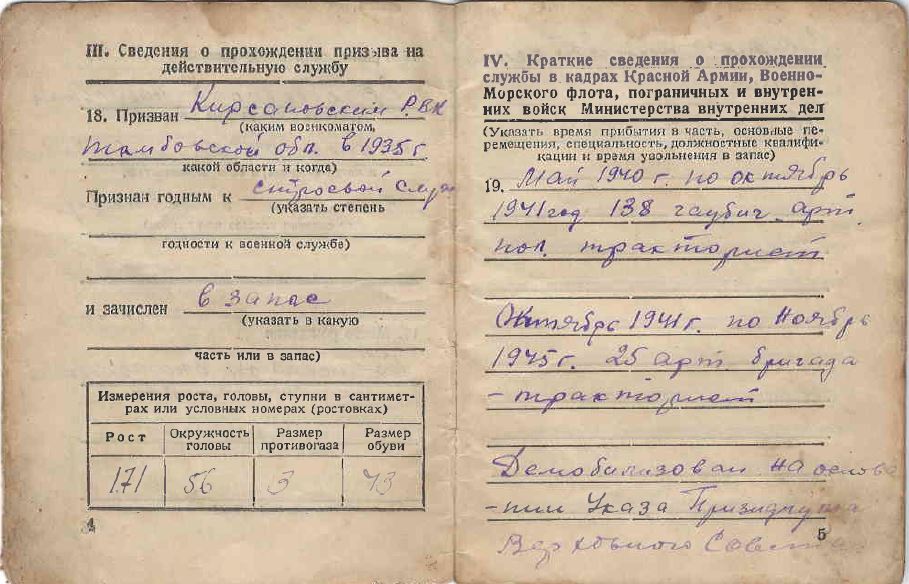 III. Сведения о прохождении призыва на
действительную службу
18. Призван Кирсановским РВК
(каким военкоматом,
Тамбовской обл. в 1935 г
какой области и когда)
Признан годным к строевой служ
(указать степень
годности к военной службе)
и зачислен в запас
(указать в какую
часть или в запас)
Измерения роста, головы, ступни в сантимет-
рах или условных номерах (ростовках)
Рост Окружность головы Размер противогаза Размер обуви
171 56 3 43
4
IV. Краткие сведения о прохождении
службы в кадрах Красной Армии, Военно-
Морского флота, пограничных и внутрен-
них войск Министерства внутренних дел
(Указать время прибытия в часть, основные пе-
ремещения, специальность, должностные квалифи-
кации и время увольнения в запас)
19. Май 1940 г. по октябрь
1941 год 138 гаубич. арт.
пол. тракторист
Октябрь 1941 г. по Ноябрь
1945 г. 25 арт. бригада
- тракторист
Демобилизован на основа
-нии Указа Призидиума
Верховного Совета
5